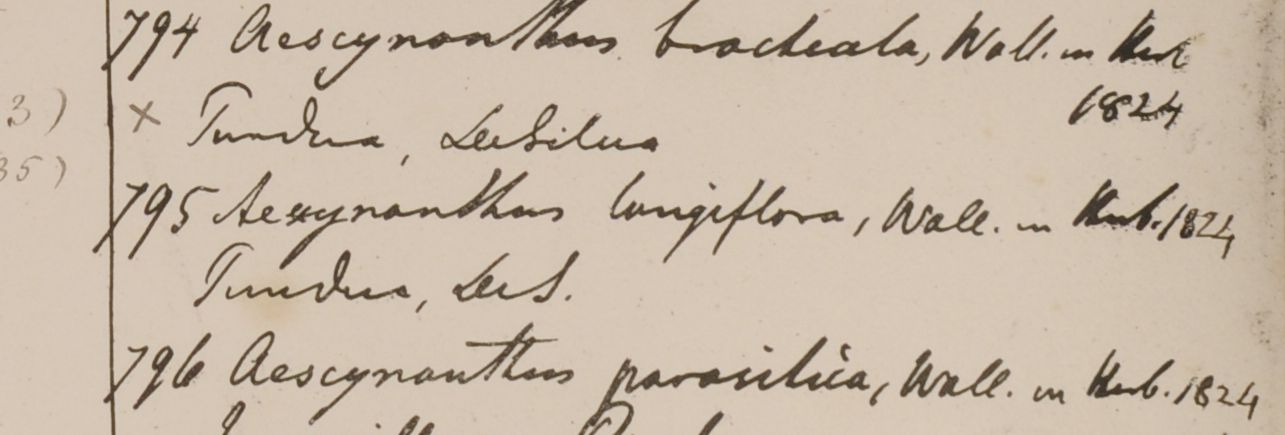 794 Aescynanthus bracteata, Wall. in Herb
3) × Tundua, DeSilva 1824
35)
795 Aescynanthus longiflora, Wall. in Herb. 1824
Tundua, DeS.
796 Aescynanthus parasitica, Wall. in Herb. 1824